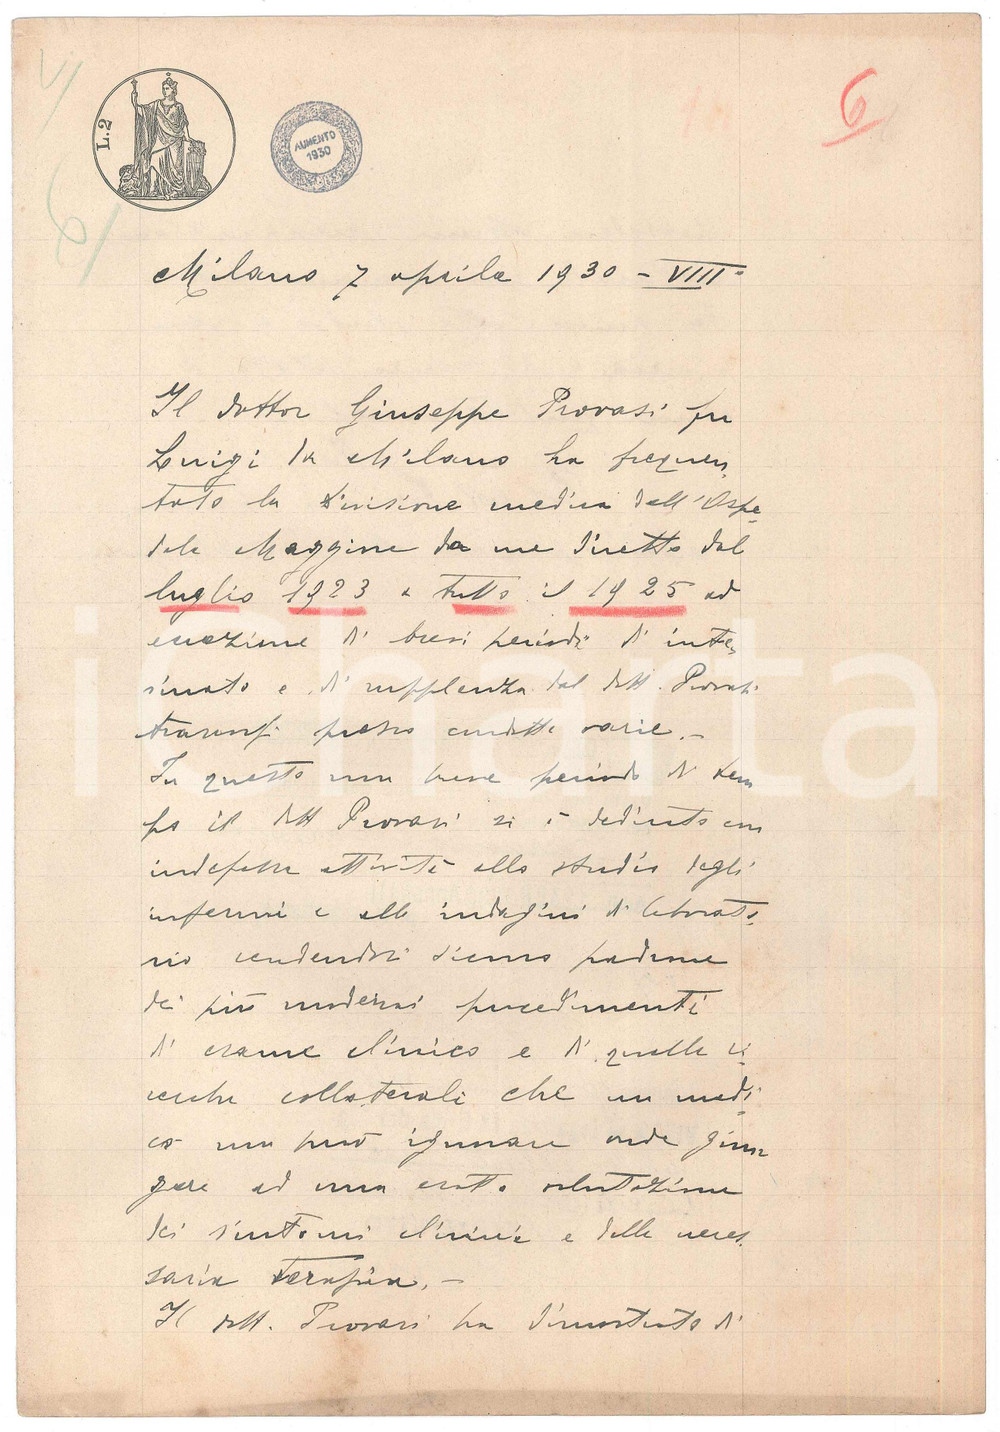 L.2
AUMENTO
1930
6
Milano 7 aprile 1930 - VIII°
Il dottor Giuseppe Provasi fu
Luigi da Milano ha frequen-
tato la Divisione medica dell'Ospe-
dale Maggiore da me diretta dal
luglio 1923 a tutto il 1925 ad
eccezione di brevi periodi di inter-
inato e di supplenza dal dott. Provasi
trascorsi presso condotte varie. -
In questo non breve periodo di tem
po il dott Provasi si è dedicato con
indefessa attività allo studio degli
infermi e alle indagini di laborato-
rio rendendosi sicuro padrone
dei più moderni procedimenti
di esame clinico e di quelle ri-
cerche collaterali che un medi-
co non può ignorare onde giun
gere ad una esatta valutazione
dei sintomi clinici e della neces-
saria terapia. -
Il dott. Provasi ha dimostrato di
iCharta